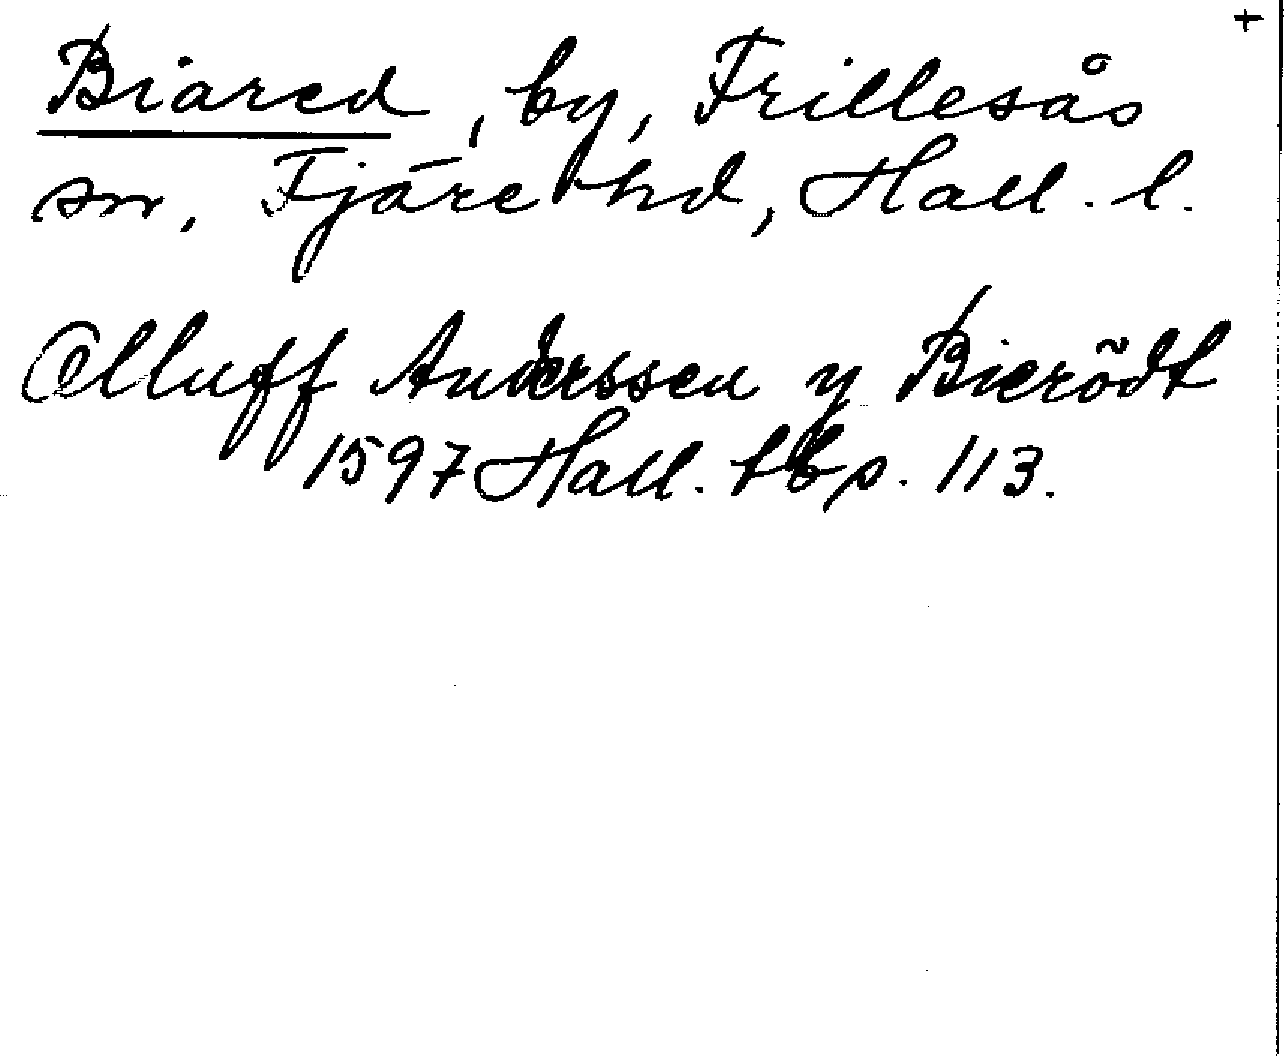 +
Biared, by, Frillesås
sn, Fjäre hd, Hall. l.
Olluff Anderssen y Bierödt
1597 Hall. tbp. 113.